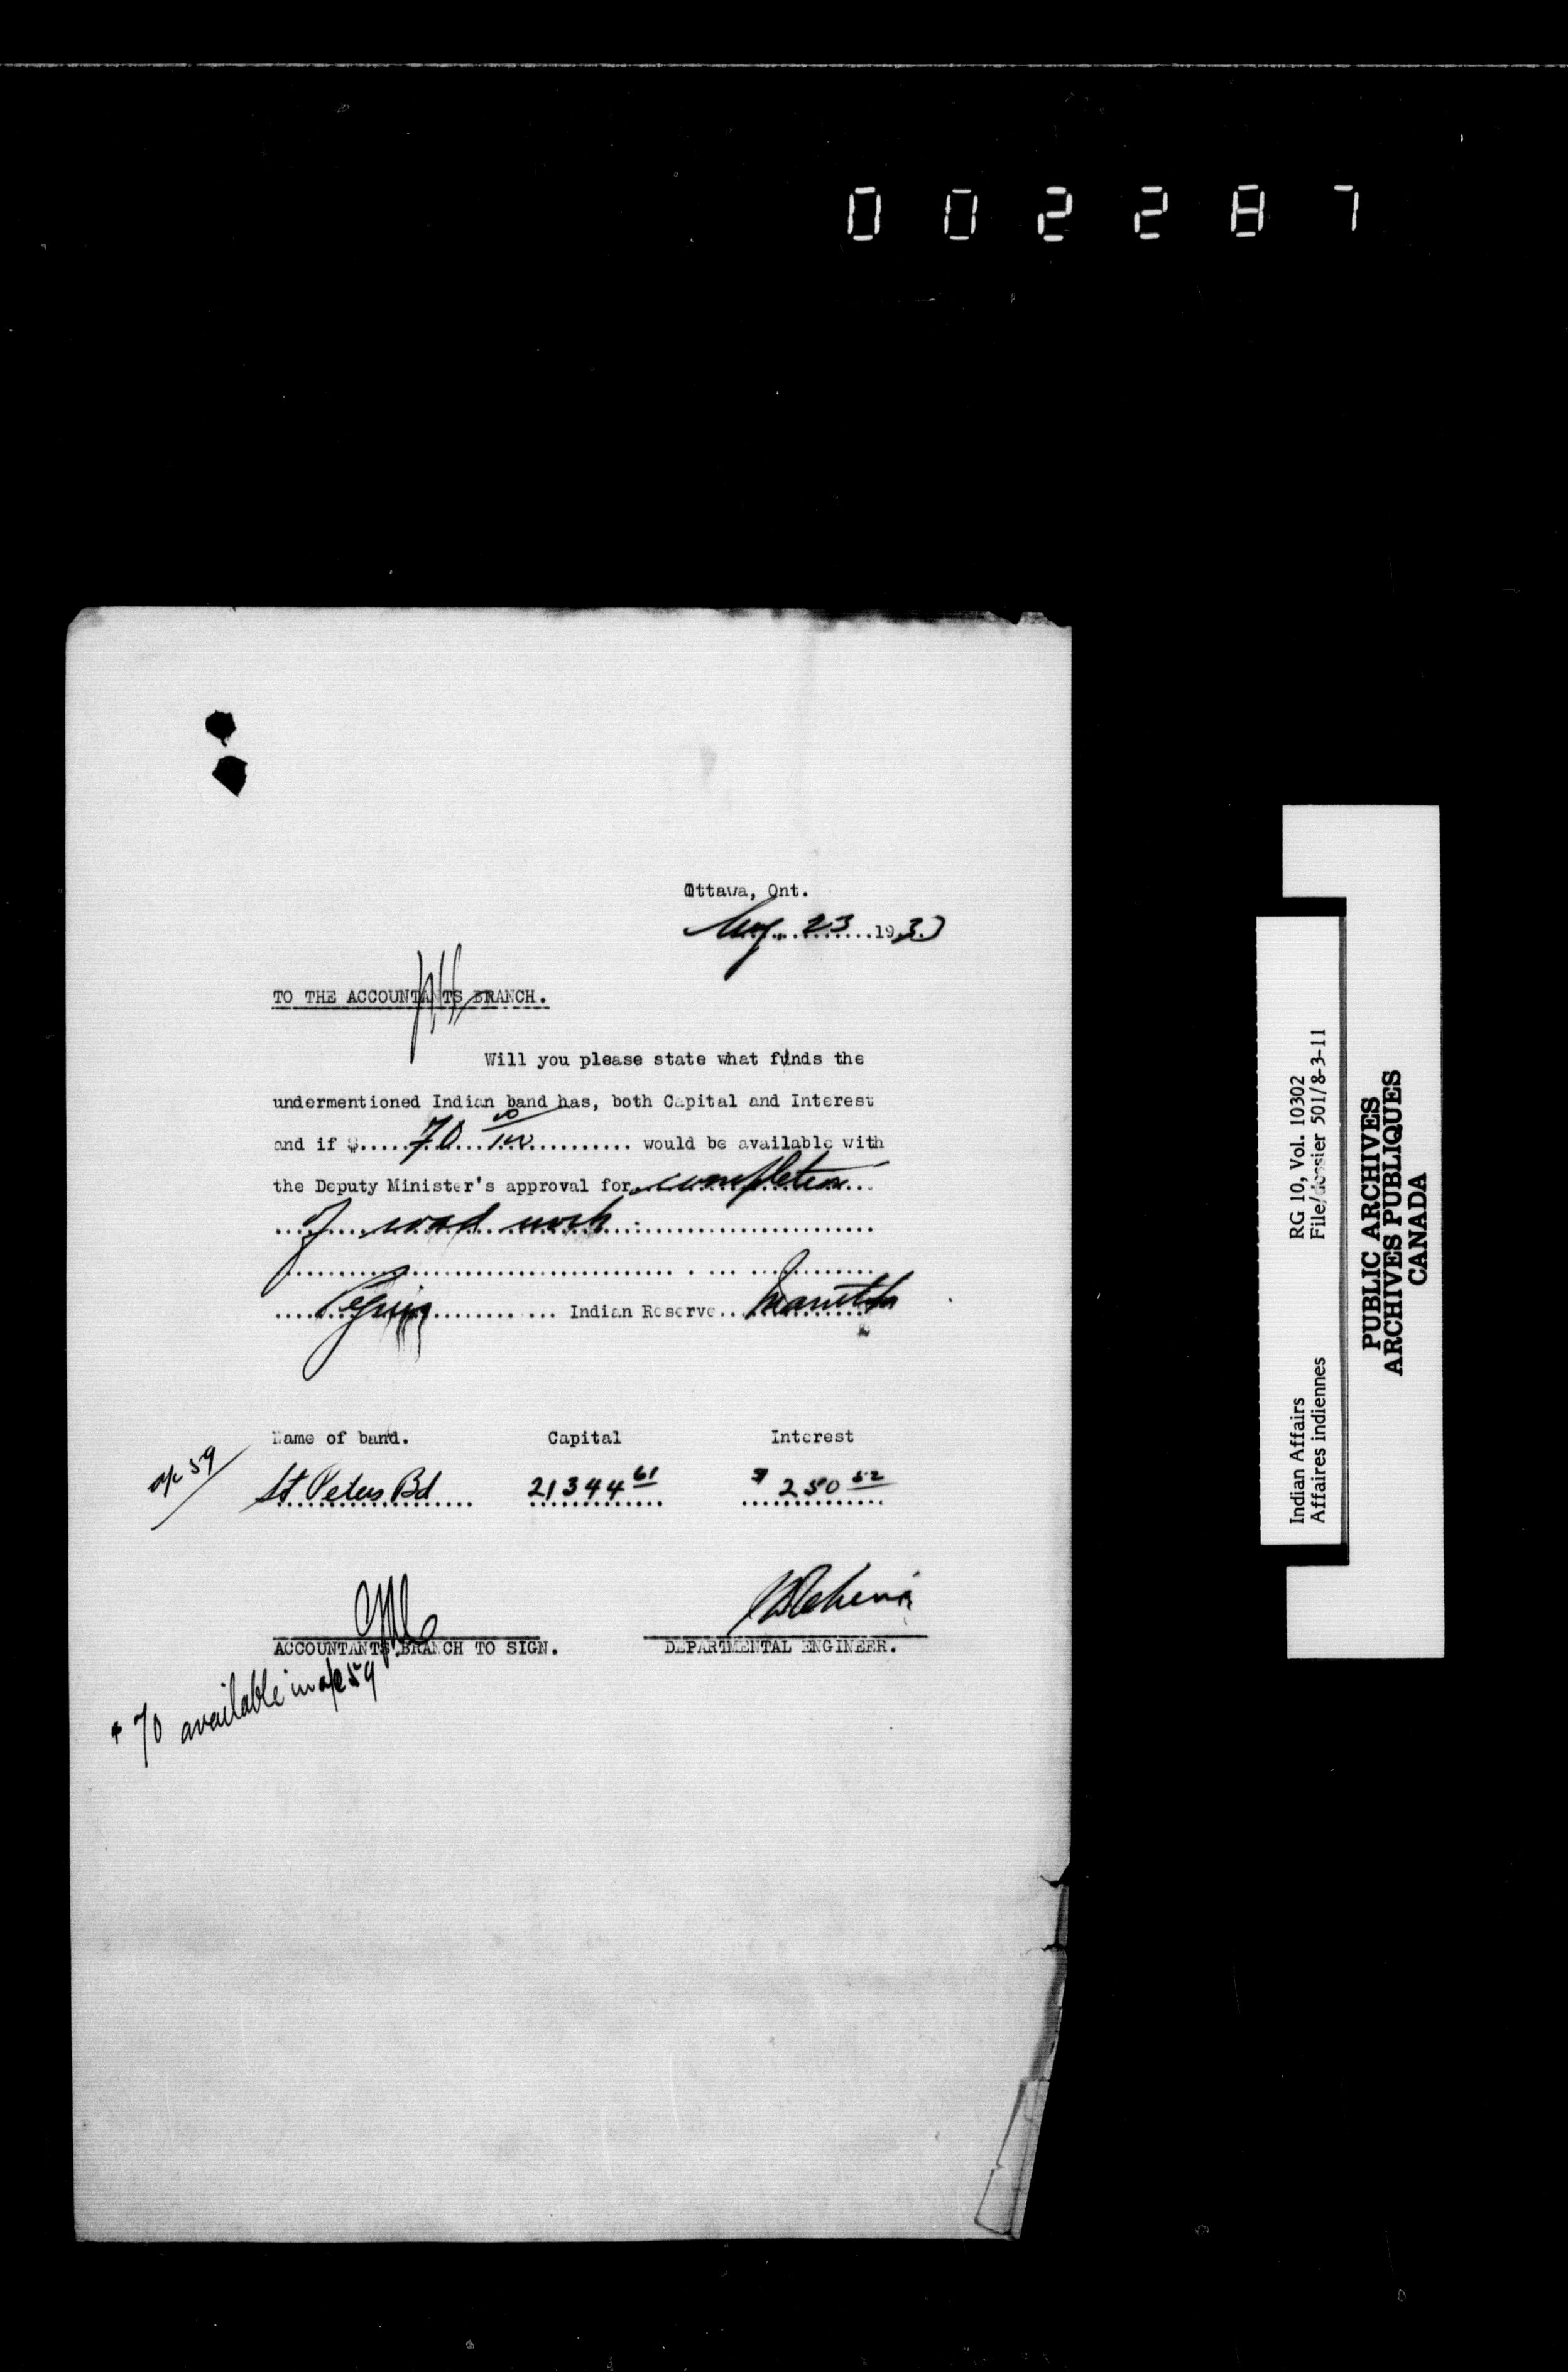 002287
Ottawa, Ont.
Aug. 23 193
TO THE ACCOUNTANTS BRANCH.
Will you please state what funds the
undermentioned Indian band has, both Capital and Interest
and if $.....70 00/100.......... would be available with
the Deputy Minister's approval for completion
of road work
Peguis Indian Reserve Manitoba
Name of band. Capital Interest
a/c 59 St Peters Bd 21344 61 $ 250 52
ACCOUNTANTS BRANCH TO SIGN. DEPARTMENTAL ENGINEER.
$70 available in a/c 59
Indian Affairs RG 10, Vol. 10302
Affaires indiennes File/dossier 501/8-3-11
PUBLIC ARCHIVES
ARCHIVES PUBLIQUES
CANADA